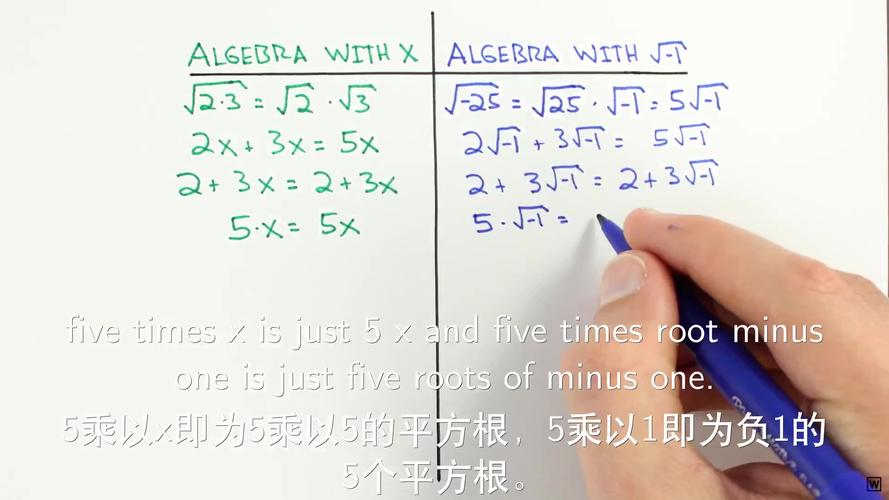 ALGEBRA WITH X
ALGEBRA WITH √-1
√2·3 = √2 · √3
√-25 = √25 · √-1 = 5√-1
2x + 3x = 5x
2√-1 + 3√-1 = 5√-1
2 + 3x = 2 + 3x
2 + 3√-1 = 2 + 3√-1
5·x = 5x
5·√-1 =
five times x is just 5 x and five times root minus
one is just five roots of minus one.
5乘以x即为5乘以5的平方根，5乘以1即为负1的
5个平方根。
W